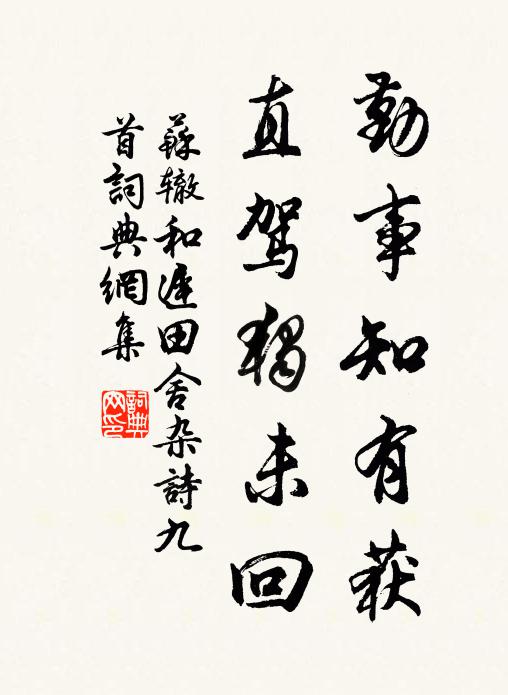 勤事知有获
直驾独未回
蘇辙和遲田舍杂詩九
首詞典網集
詞典网印